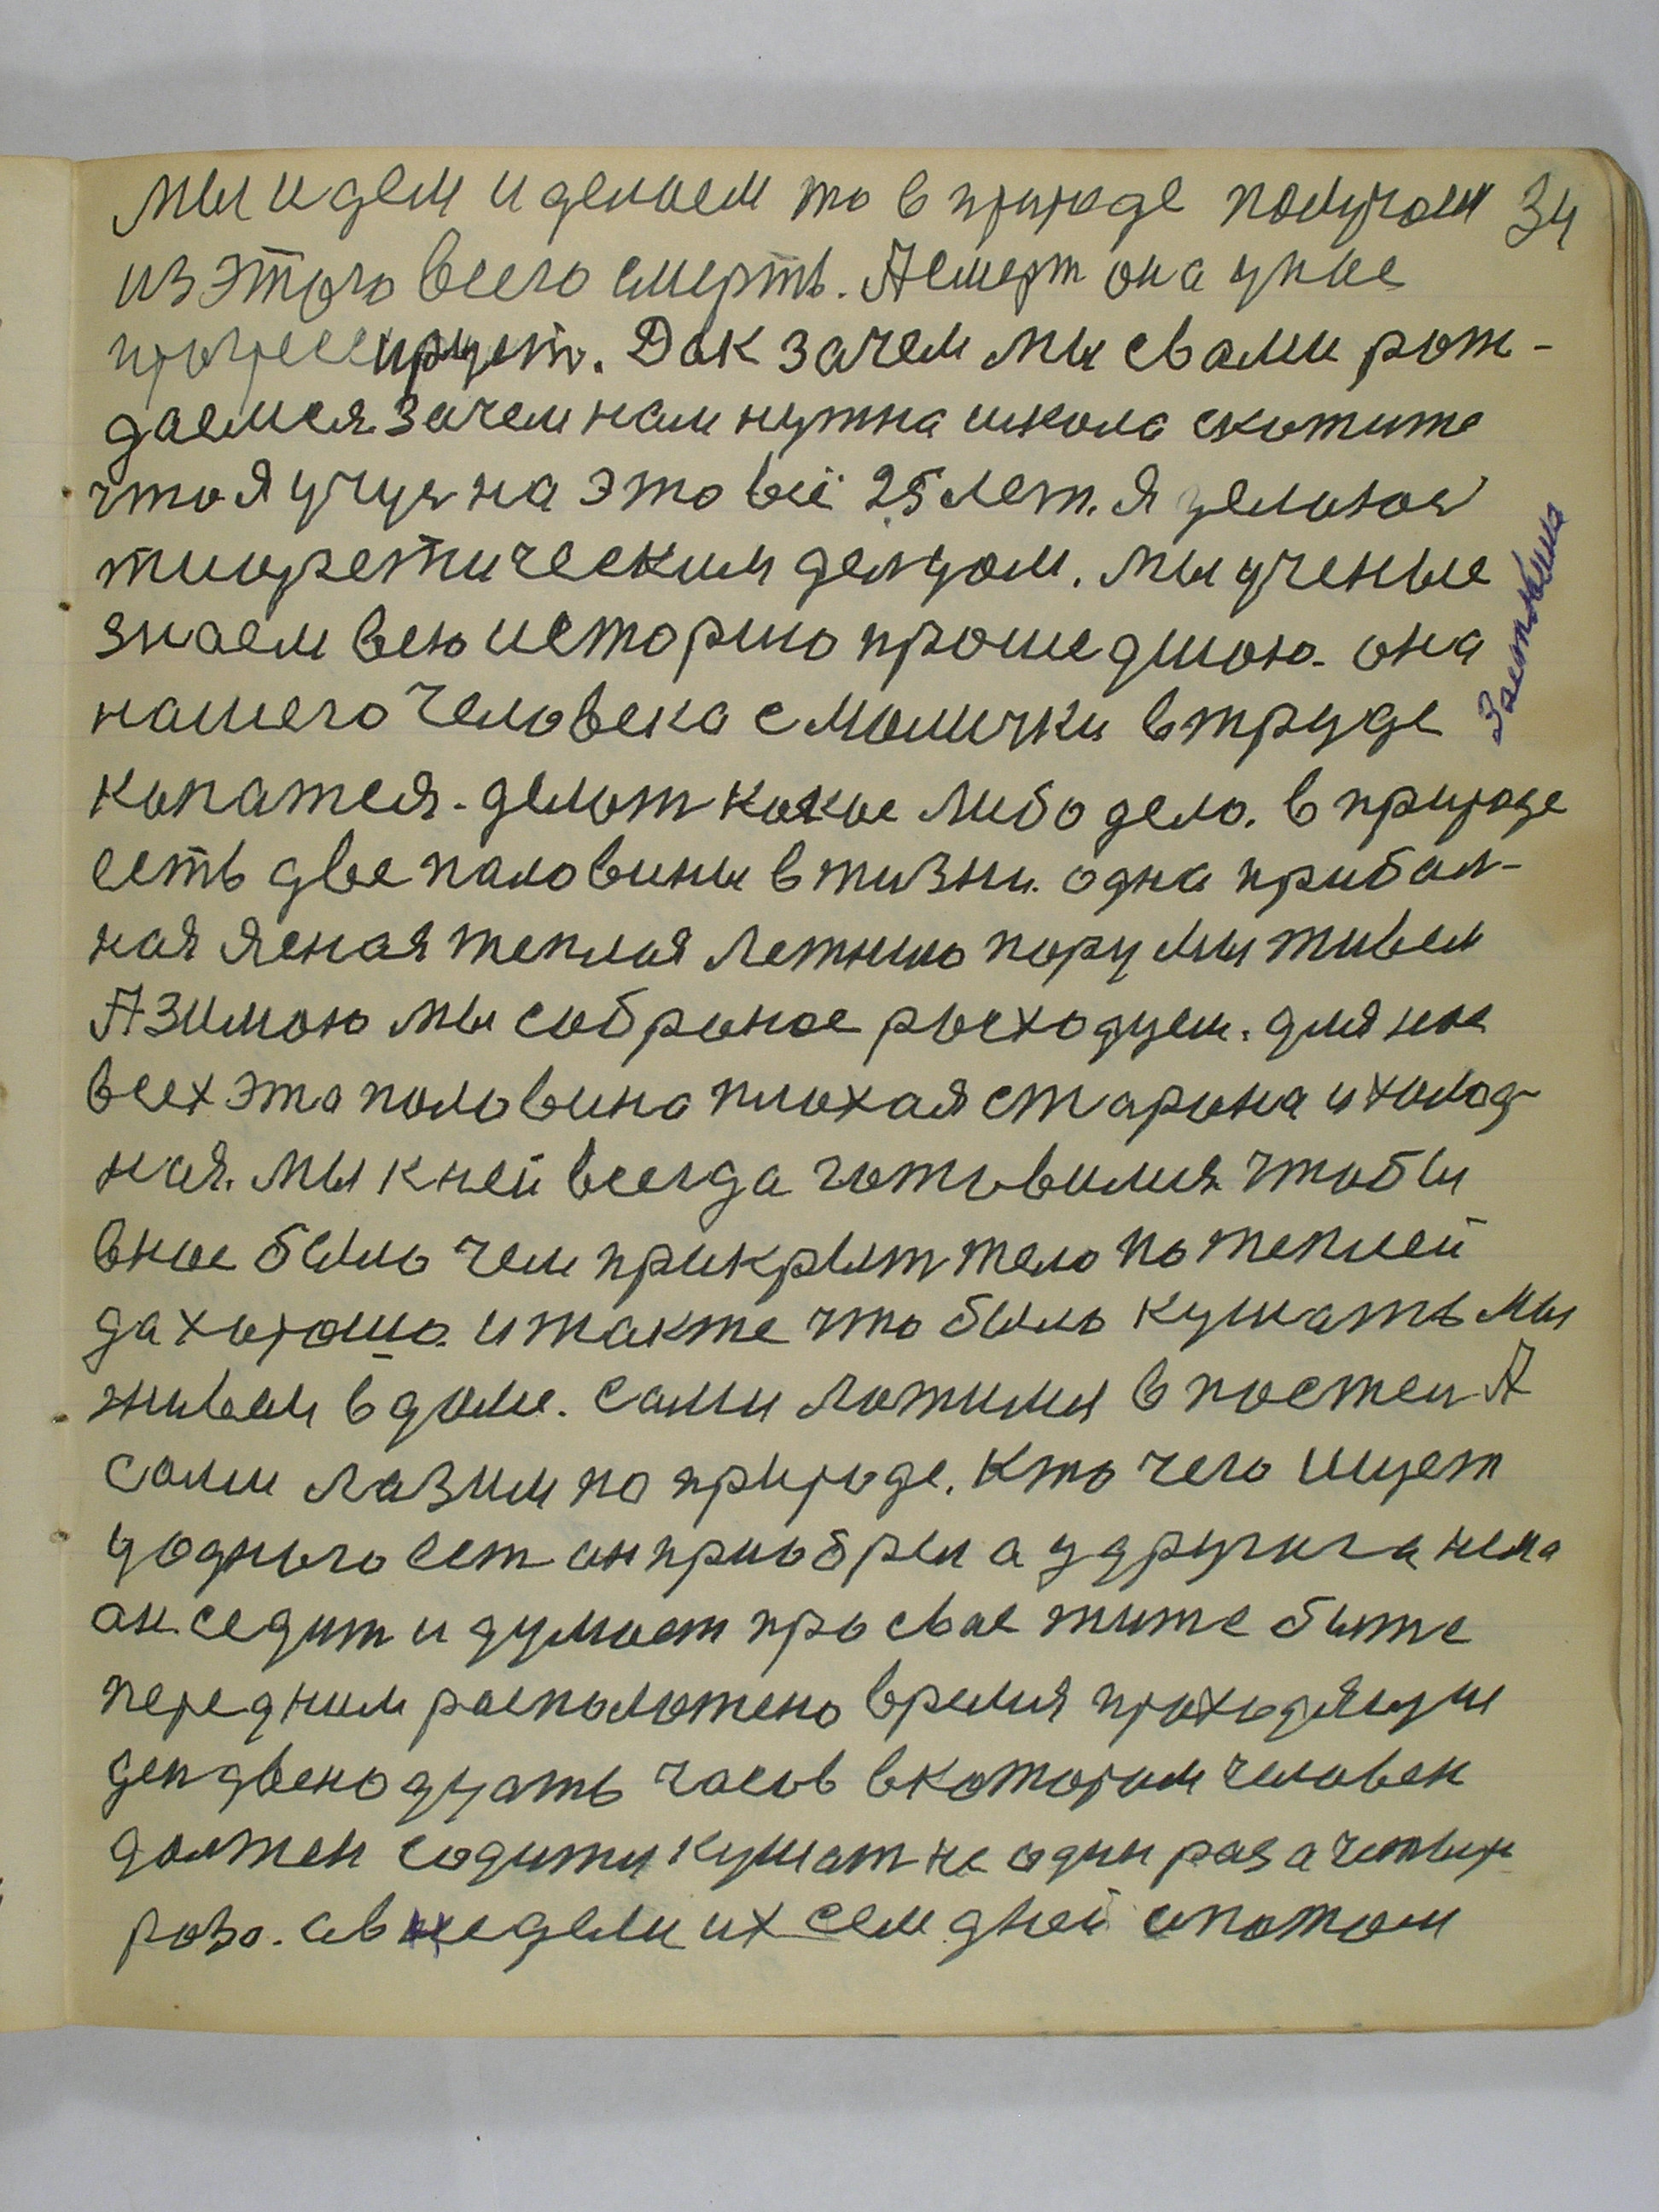 мы идем и делаем то в природе получаем 34
из этого всего смерть. А смерт она у нас
прогрессирует. Дак зачем мы с вами рож-
даемся зачем нам нужна школа скажите
что я учус на это всё 25 лет. я зделался
тиоретическим дельцом. мы ученые
знаем всю историю прошедшою. она
нашего человека с маличку в труде
копатся. делат какое либо дело. в природе
есть две паловины в жизни. одна прибал-
ная ясная теплая летнию пору мы живем
А зимою мы собраное расходуем. для нас
всех эта половина плохая старона и холод-
ная. мы к ней всегда готовимся чтобы
в нас было чем прикрыт тело по теплей
да хорошо. и также что было кушать мы
живем в доме. сами ложимся в постел А
сами лазим по природе. Кто чего ищет
у одного ест он приобрел а у другога нема
он седит и думает про свое житие бытие
перед ним расположено время проходящие
ден двенадцать часов в котором человек
должен садится кушат не один раз а четыри
раза. а в недели их сем дней и потом